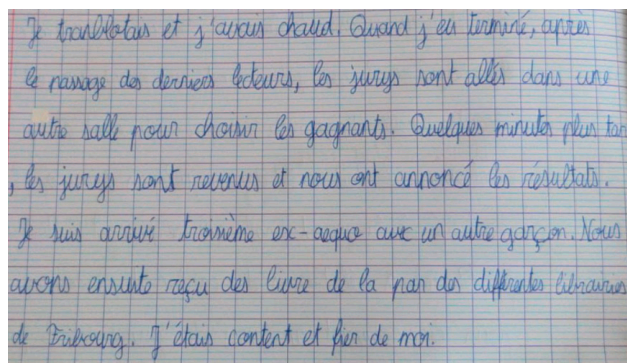 Je tranblotais et j'avais chaud. Quand j'eu terminé, après
le passage des derniers lecteurs, les jurys sont allés dans une
autre salle pour choisir les gagnants. Quelques minutes plus tar
, les jurys sont revenus et nous ont annoncé les résultats.
Je suis arrivé troisième ex-aequo avec un autre garçon. Nous
avons ensuite reçu des livre de la par des différentes librairies
de Fribourg. J'étais content et fier de moi.